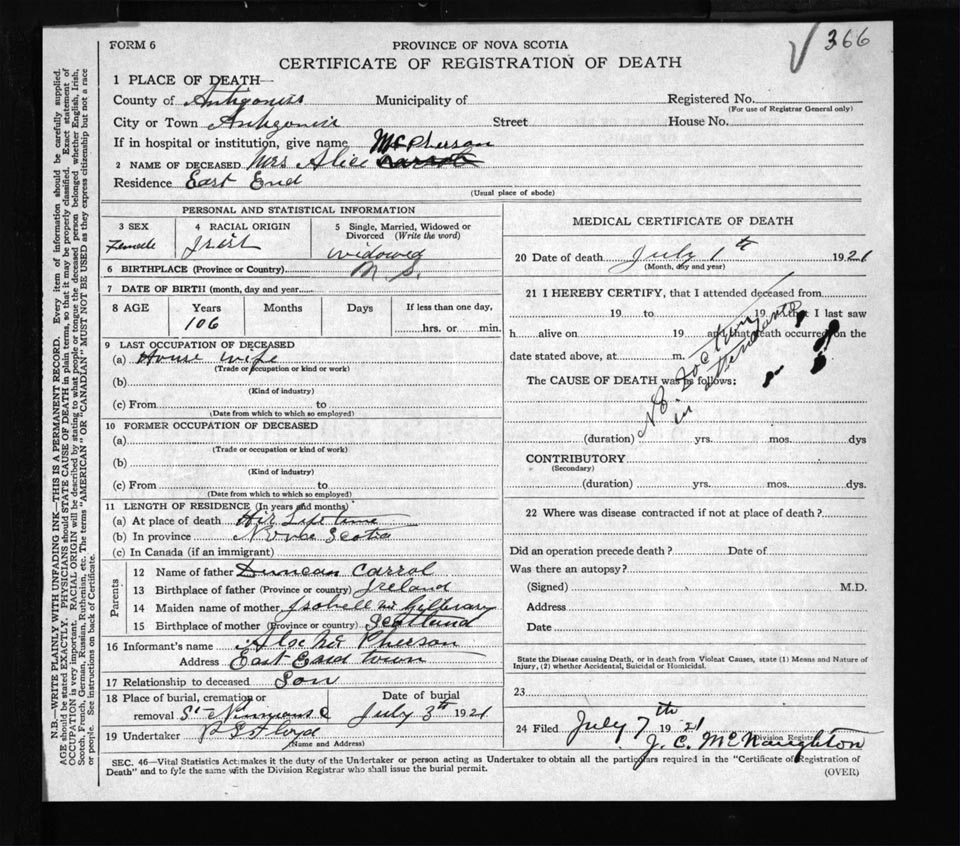 366
FORM 6
PROVINCE OF NOVA SCOTIA
CERTIFICATE OF REGISTRATION OF DEATH
1 PLACE OF DEATH—
County of Antigonish Municipality of Registered No.
(For use of Registrar General only)
City or Town Antigonish Street House No.
If in hospital or institution, give name McPherson
2 NAME OF DECEASED Mrs Alice
Residence East End
(Usual place of abode)
PERSONAL AND STATISTICAL INFORMATION
3 SEX 4 RACIAL ORIGIN 5 Single, Married, Widowed or Divorced (Write the word)
Female Irish widowed
6 BIRTHPLACE (Province or Country) N S.
7 DATE OF BIRTH (month, day and year)
8 AGE Years Months Days If less than one day,
106 hrs. or min.
9 LAST OCCUPATION OF DECEASED
(a) House wife
(Trade or occupation or kind or work)
(b)
(Kind of industry)
(c) From to
(Date from which to which so employed)
10 FORMER OCCUPATION OF DECEASED
(a)
(Trade or occupation or kind of work)
(b)
(Kind of industry)
(c) From to
(Date from which to which so employed)
11 LENGTH OF RESIDENCE (In years and months)
(a) At place of death Her Life time
(b) In province Nova Scotia
(c) In Canada (if an immigrant)
Parents
12 Name of father Duncan Carrol
13 Birthplace of father (Province or country) Ireland
14 Maiden name of mother Isobell Mc Gillvrary
15 Birthplace of mother (Province or country) Scotland
16 Informant's name Mc Pherson
Address East End town
17 Relationship to deceased Son
18 Place of burial, cremation or removal St Ninians Date of burial July 3th 1921
19 Undertaker
(Name and Address)
MEDICAL CERTIFICATE OF DEATH
20 Date of death July 1th 1921
(Month, day and year)
21 I HEREBY CERTIFY, that I attended deceased from
19 to 19 that I last saw
h alive on 19 and that death occurred on the
date stated above, at m.
The CAUSE OF DEATH was as follows:
No. Doctor in attendance
(duration) yrs. mos. dys
CONTRIBUTORY
(Secondary)
(duration) yrs. mos. dys.
22 Where was disease contracted if not at place of death?
Did an operation precede death? Date of
Was there an autopsy?
(Signed) M.D.
Address
Date
State the Disease causing Death, or in death from Violent Causes, state (1) Means and Nature of
Injury, (2) whether Accidental, Suicidal or Homicidal.
23
24 Filed July 7th 1921
J. C. McNaughton
Division Registrar
SEC. 46—Vital Statistics Act: makes it the duty of the Undertaker or person acting as Undertaker to obtain all the particulars required in the "Certificate of Registration of
Death" and to fyle the same with the Division Registrar who shall issue the burial permit.
(OVER)
N.B.—WRITE PLAINLY WITH UNFADING INK—THIS IS A PERMANENT RECORD. Every item of information should be carefully supplied.
AGE should be stated EXACTLY. PHYSICIANS should STATE CAUSE OF DEATH in plain terms, so that it may be properly classified. Exact statement of
OCCUPATION is very important. RACIAL ORIGIN will be described by stating to what people or tongue the deceased person belonged whether English, Irish,
Scotch, French, German, Russian, Ruthenian, etc. The terms "AMERICAN" OR "CANADIAN" MUST NOT BE USED as they express citizenship but not a race
or people. See instructions on back of Certificate.